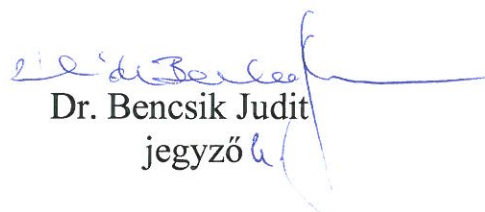 Dr. Bencsik Judit
jegyző